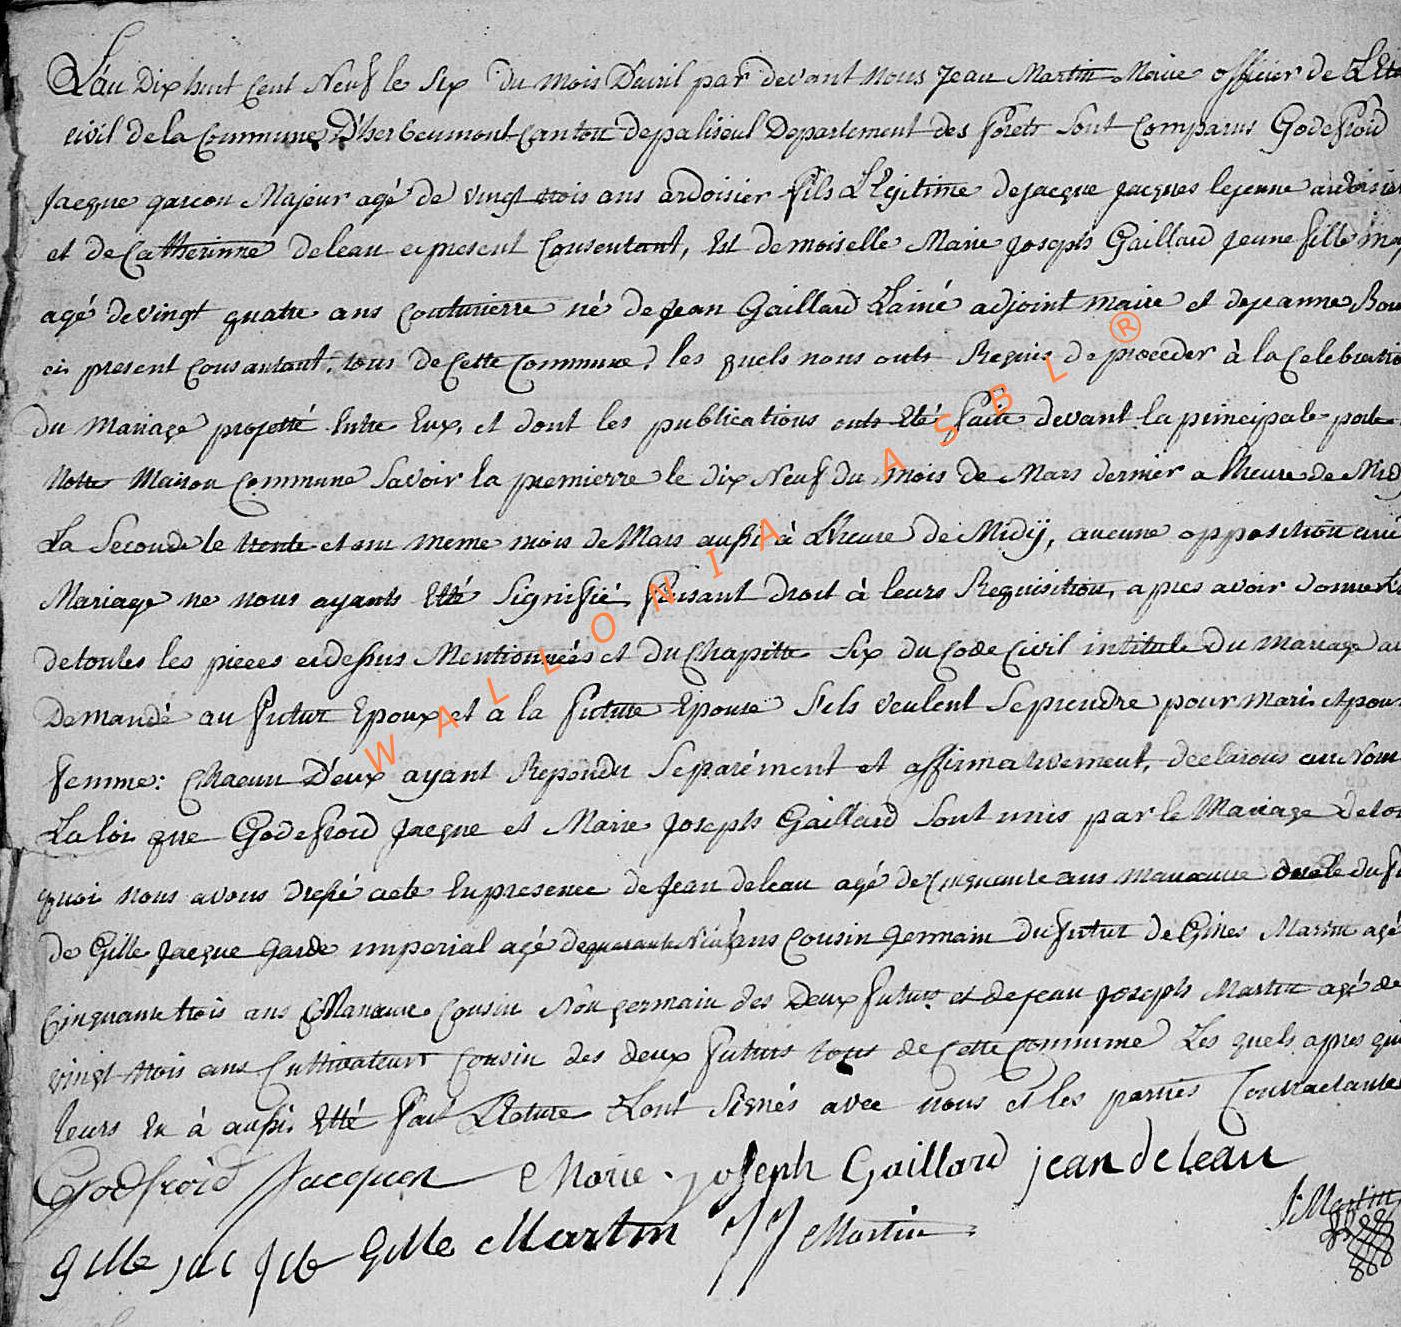 L'an Dix huit Cent Neuf le Six du mois D'avril par devant nous Jean Martin Maire officier de L'Eta
civil de la Commune D'herbeumont Canton de paliseul Departement des Forets Sont Comparus Godefroid
Jacque garcon Majeur agé de vingt trois ans ardoisier fils Legitime de jacque Jacques lejeune ardoisier
et de Catherinne deleau ci present Consentant, Est demoiselle Marie Joseph Gaillard Jeune fille maj
agé de vingt quatre ans Couturierre né de Jean Gaillard L'ainé adjoint maire et de jeanne
ci present Consantant, tous de Cette Commune, les quels nous onts Requis de proceder à la Celebratio
du Mariage projetté Entre Eux, et dont les publications onts Eté faite devant la principale porte
Notre Maison Commune Savoir la premierre le dix Neuf du mois de Mars dernier a l'heure de Midy
La Seconde le trente et un meme mois de Mars aussi à L'heure de Midij, aucune opposition audi
Mariage ne nous ayants Etté Signifié, faisant droit à leurs Requisition, apres avoir donner
de toutes les pieces ci dessus Mentionnées et du Chapitte Six du Code Civil intitule Du Mariage
Demandé au futur Epoux et a la future Epouse S'ils veulent Se prendre pour Mari et pour
femme: Chacun D'eux ayant Repondu Separément et affirmativement, declarons au Nom
La loi que Godefroid Jacque et Marie Joseph Gaillard Sont unis par le Mariage De tou
quoi nous avons dressé acte En presence de Jean deleau agé de Cinquante ans manœuvre oncle du fu
de Gille Jacque garde imperial agé de quarante Neuf ans Cousin germain du futur de Gilles Martin agé
Cinquante trois ans Manœuvre Cousin Nôn germain des Deux futurs et de jean Joseph Martin agé de
vingt trois ans Cultivateur Cousin des deux futurs tous de Cette Commune Les quels apres qu
leurs En à aussi Etté fait Lecture L'ont Signés avec nous et les parties Contractante
Godfroid Jacques Marie joseph Gaillard jean deleau
gille Gille Martin JJ Martin J Martin
WALLONIA ASBL ®